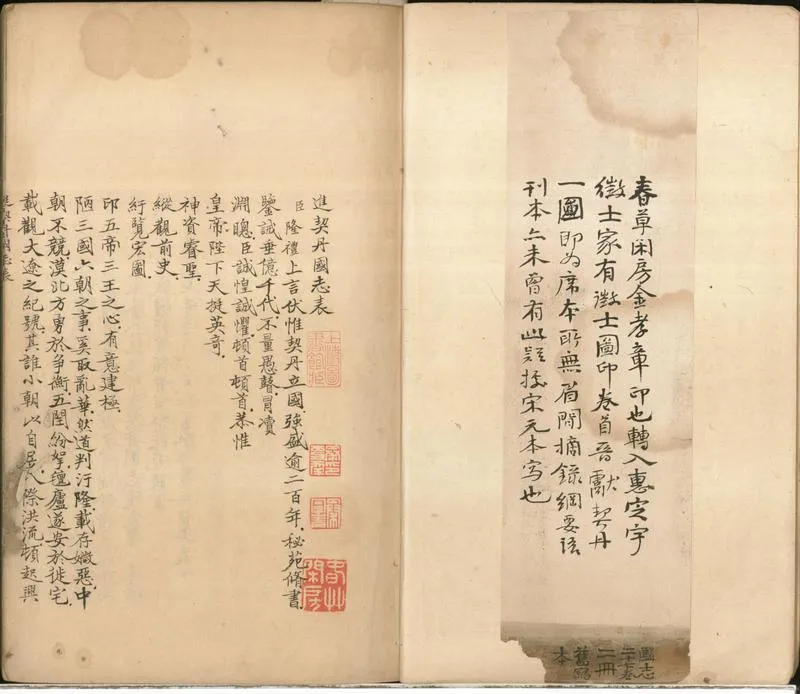 春草閑房金孝章印也轉入惠定宇
徵士家有徵士圖印卷首晉獻契丹
一圖即為席本所無眉間摘錄綱要語
刊本亦未曾有此疑據宋元本写也
國志
二冊
舊寫
本
進契丹國志表
臣隆禮上言伏惟契丹立國強盛逾二百年.秘苑脩書.
鑒誡垂億千代.不量愚瞽冒瀆
淵聰.臣誠惶誠懼.頓首頓首.恭惟
皇帝陛下天挺英奇.
神資睿聖.
縱觀前史.
紆覽宏圖.
印五帝三王之心.有意建極.
陋三國六朝之事.奚取亂華.然道判汙隆.載存媺惡.中
朝不競.漠北方勇於爭衡.五閏紛拏.氊廬遂安於徙宅.
載觀大遼之紀號.其誰小朝以自居.八際洪流.頓起興
上海圖書館藏
春艸閑房